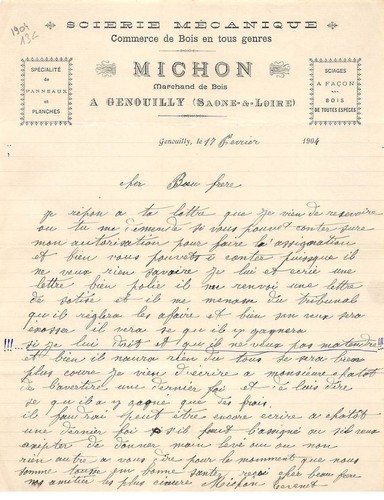 1904
SCIERIE MÉCANIQUE
Commerce de Bois en tous genres
SPÉCIALITÉ
DE
PANNEAUX
ET
PLANCHES
MICHON
Marchand de Bois
A GENOUILLY (SAONE-&-LOIRE)
SCIAGES
A FAÇON
BOIS
DE TOUTES ESPÈCES
Genouilly, le 17 Fevrier 1904
cher Beau frere
je répon a ta lettre que je vien de resevoire
ou tu me demende si vous pouvet conter sure
mon autorisation pour faire la assignation
et bien vous pouvet i conter puisque il
ne veux rien savoire je lui et écrie une
lettre bien polie il me renvoi une lettre
de sotise et il me menase du tribunal
qu il règlera les afaire et bien on vas
esaser il vera se qu il y gagnera
!!! si je lui doit et qu il ne veux pas matendre !!!
et bien il noura rien du tous se sera bien
plus coure je vien d'écrire a monsieur
a lavertire une dernier foi et lui dire
se qu il a y gagné que des frais.
il poudrai peut être encore ecrire a
une dernier foi s il faut ou sil veux
de donner main levé oui ou non
rien autre a vous dire pour le moment que nous
somme tous en bonne santez reçoi cher beau frere
mes amitier les plus sincere Michon